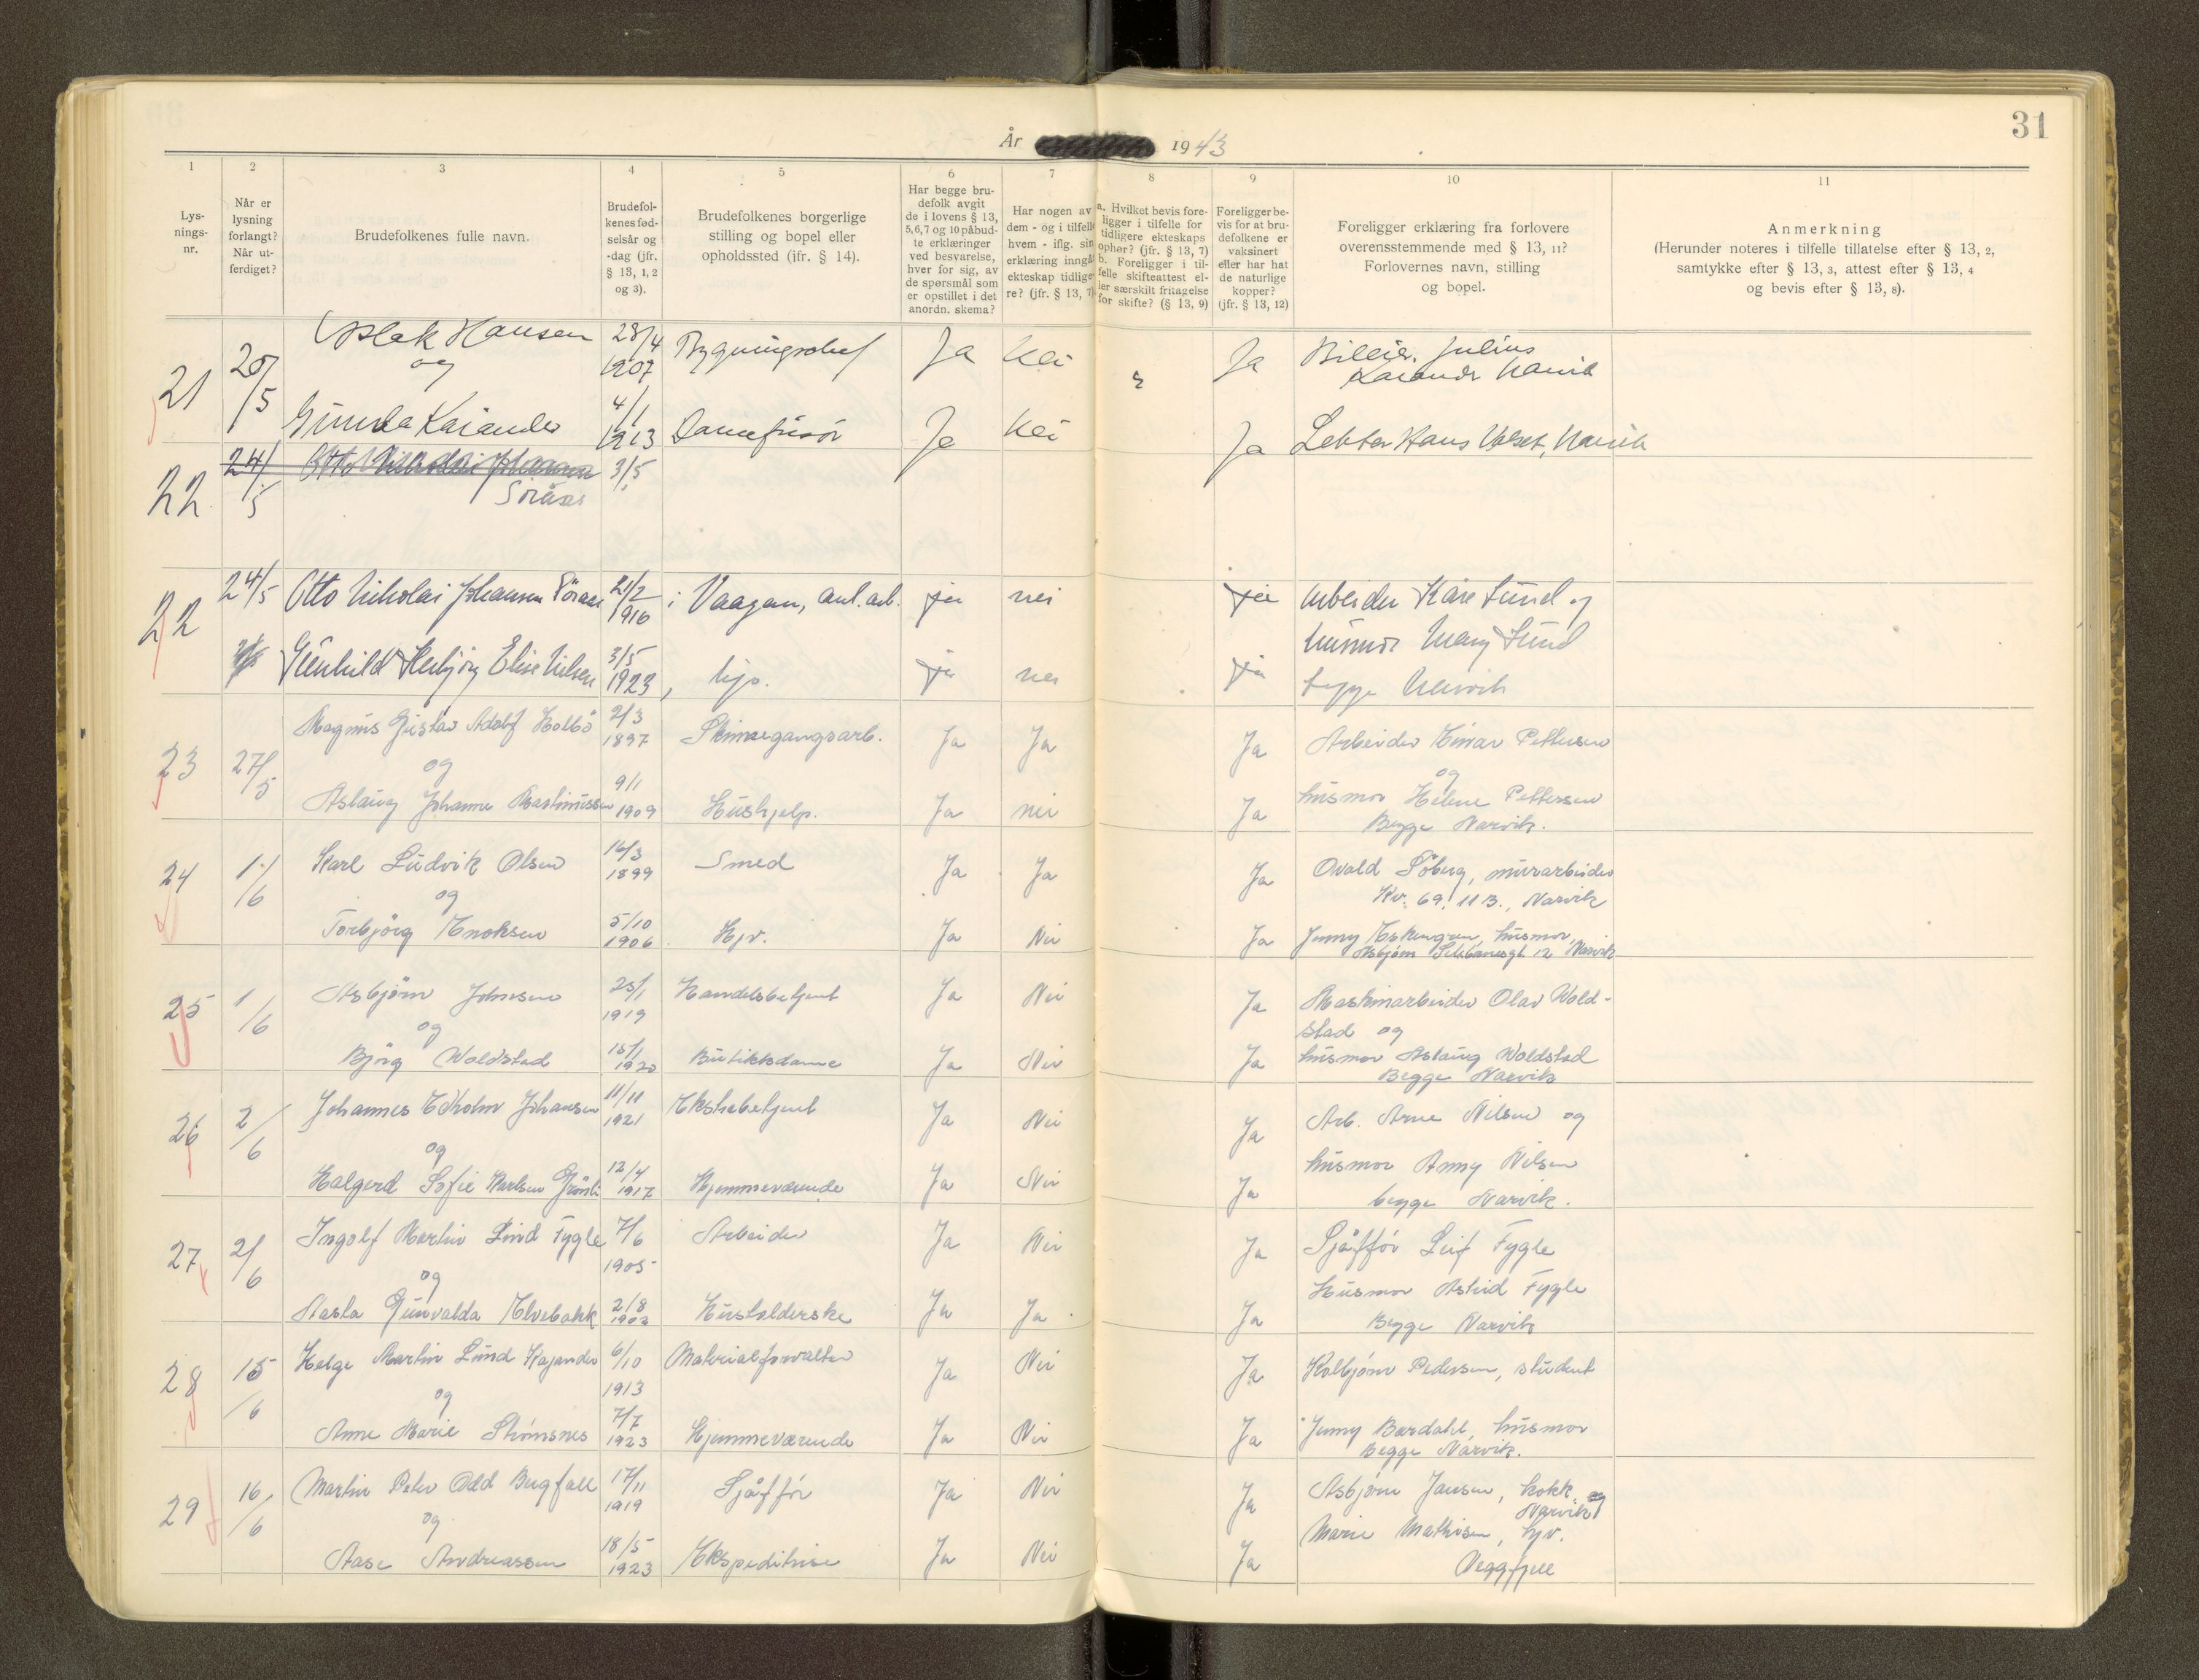 31
År 1943
1 2 3 4 5 6 7 8 9 10 11
Lys-
nings-
nr.
Når er
lysning
forlangt?
Når ut-
ferdiget?
Brudefolkenes fulle navn.
Brudefol-
kenes fød-
selsår og
-dag (jfr.
§ 13, 1, 2
og 3).
Brudefolkenes borgerlige
stilling og bopel eller
opholdssted (ifr. § 14).
Har begge bru-
defolk avgit
de i lovens § 13,
5, 6, 7 og 10 påbud-
te erklæringer
ved besvarelse,
hver for sig, av
de spørsmål som
er opstillet i det
anordn. skema?
Har nogen av
dem - og i tilfelle
hvem - iflg. sin
erklæring inngå
ekteskap tidlige-
re? (jfr. § 13, 7)
a. Hvilket bevis fore-
ligger i tilfelle for
tidligere ekteskaps
ophør? (jfr. § 13, 7)
b. Foreligger i til-
felle skifteattest el-
ler særskilt fritagelse
for skifte? (§ 13, 9)
Foreligger be-
vis for at bru-
defolkene er
vaksinert
eller har hat
de naturlige
kopper?
(jfr. § 13, 12)
Foreligger erklæring fra forlovere
overensstemmende med § 13, 11?
Forlovernes navn, stilling
og bopel.
Anmerkning
(Herunder noteres i tilfelle tillatelse efter § 13, 2,
samtykke efter § 13, 3, attest efter § 13, 4
og bevis efter § 13, 8).
21 20/5 Aslak Hansen 28/4 1907 Ja Nei Ja Julius
og
Kaiander Narvik
Gunda Kaiander 4/1 1913 Damefrisør Ja Nei Ja Lektor Hans Narvik
22 24/5 Otto Nikolai Johansen 3/5
Söraas
22 24/5 Otto Nikolai Johansen Söraas 21/2 1916 i Vaagan, anl. arb. ja nei ja Arbeider Kåre Lund og
husmor Mary Lund
Gunhild Herbjörg Elise Nilsen 3/5 1923, hjv. ja nei ja begge Narvik
23 27/5 Magnus Gustav Adolf Holbö 2/3 1897 Skinnegangsarb. Ja Ja Ja Arbeider Einar Pettersen
og og
Aslaug Johanne Martinussen 9/1 1909 Hushjelp. Ja nei Ja husmor Helene Pettersen
Begge Narvik.
24 1/6 Karl Ludvik Olsen 16/3 1899 Smed Ja Ja Ja Ovald Söberg, murarbeider
og Kv. 69. 113., Narvik
Torbjörg Enoksen 5/10 1906 Hjv. Ja Nei Ja Jenny husmor,
12 Narvik
25 1/6 Asbjörn Johnsen 25/1 1919 Handelsbetjent Ja Nei Ja Maskinarbeider Olav Wold-
og stad og
Bjórg Woldstad 15/1 1920 Butikksdame Ja Nei Ja husmor Aslaug Woldstad
Begge Narvik
26 2/6 Johannes Edholm Johansen 11/11 1921 Ekstrabetjent Ja Nei Ja Arb. Arne Nilsen og
og husmor Anny Nilsen
Halgerd Sofie Karlsen Grönli 12/4 1917 Hjemmeværende Ja Nei Ja begge Narvik.
27 2/6 Ingolf Martin Lind Fygle 7/6 1905 Arbeider Ja Nei Ja Sjåffór Leif Fygle
og Husmor Astrid Fygle
Aasta Gunvalda Elvebakk 2/8 1902 Husholderske Ja Ja Ja Begge Narvik
28 15/6 Helge Martin Lund Kajander 6/10 1913 Materialforvalter Ja Nei Ja Kolbjörn Pedersen, student
og
Anne Marie Strömsnes 7/7 1923 Hjemmeværende Ja Nei Ja Jenny Bardahl, husmor
Begge Narvik.
29 16/6 Martin Peter Odd Bugfall 17/11 1919 Sjåffór Ja Nei Ja Asbjörn Jansen, kokk og
Narvik
og Marie Mathisen, hjv.
Aase Andreassen 18/5 1923 Ekspeditrise Ja Nei Ja Veggfjell